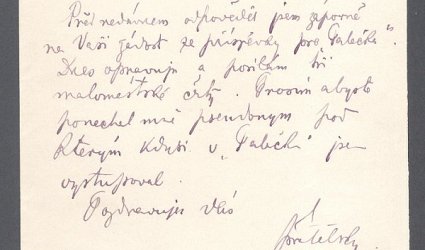 Před nedávnem odpověděl jsem záporně
na Vaši žádost za příspěvky pro "Palečka".
Dnes opravuji a posílám tři
maloměstské črty. Prosím abyste
ponechal mně pseudonym pod
kterým kdysi v "Palečku" jsem
vystupoval.
Pozdravuje Vás
přátelsky